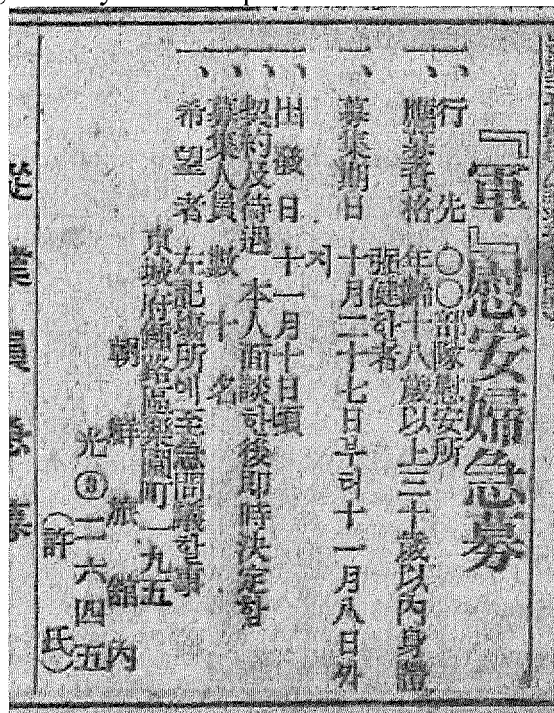 『軍』慰安婦急募
一、行先 〇〇部隊慰安所
一、應募資格 年齡十八歲以上三十歲以內身體
强健한者
一、募集期日 十月二十七日부터十一月八日까
지
一、出發日 十一月十日頃
一、契約及待遇 本人面談한後卽時決定함
一、募集人員 數十名
一、希望者 左記場所에至急問議할事
京城府鍾路區樂園町一九五
朝鮮旅舘內
光③二六四五
(許氏)
從業員急募